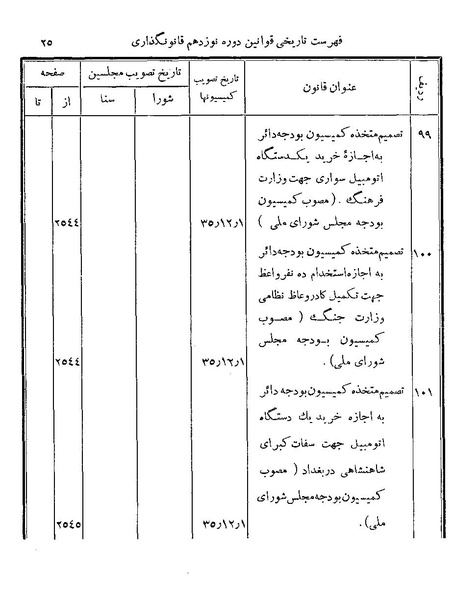 فهرست تاریخی قوانین دوره نوزدهم قانونگذاری ۲۵
ردیف عنوان قانون تاریخ تصویب کمیسیونها تاریخ تصویب مجلسین صفحه
شورا سنا از تا
۹۹ تصمیم متخذه کمیسیون بودجه دائر
به اجازهٔ خرید یکدستگاه
اتومبیل سواری جهت وزارت
فرهنگ . ( مصوب کمیسیون
بودجه مجلس شورای ملی ) ۳۵٫۱۲٫۱ ۲۵٤٤
۱۰۰ تصمیم متخذه کمیسیون بودجه دائر
به اجازه استخدام ده نفر واعظ
جهت تکمیل کادر وعاظ نظامی
وزارت جنگ ( مصوب
کمیسیون بودجه مجلس
شورای ملی ) . ۳۵٫۱۲٫۱ ۲۵٤٤
۱۰۱ تصمیم متخذه کمیسیون بودجه دائر
به اجازه خرید یك دستگاه
اتومبیل جهت سفات کبرای
شاهنشاهی در بغداد ( مصوب
کمیسیون بودجه مجلس شورای
ملی ) . ۳۵٫۱۲٫۱ ۲۵٤۵